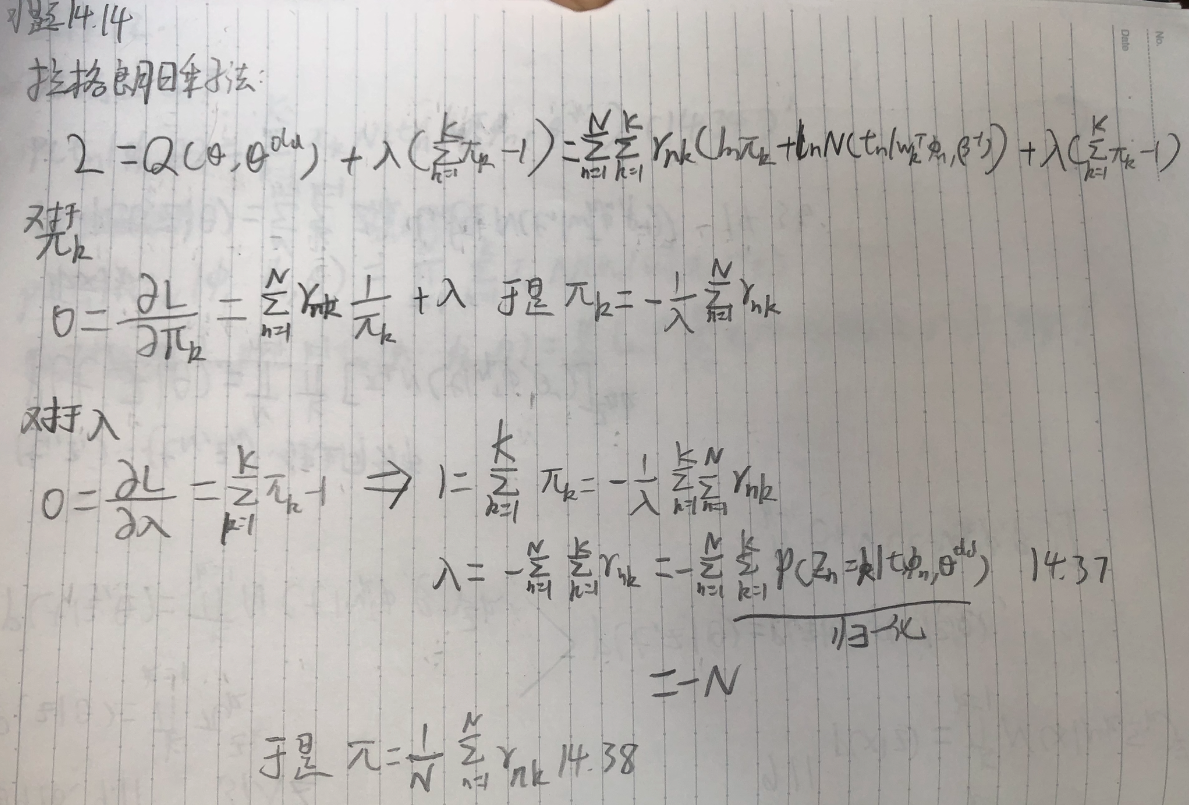 习题14.14
拉格朗日乘子法:
L = Q(θ, θ^{old}) + λ(∑_{k=1}^{K} π_k - 1) = ∑_{n=1}^{N} ∑_{k=1}^{K} γ_{nk} (ln π_k + ln N(t_n | w_k^T ϕ_n, β^{-1})) + λ(∑_{k=1}^{K} π_k - 1)
对于 π_k
0 = ∂L/∂π_k = ∑_{n=1}^{N} γ_{nk} 1/π_k + λ 于是 π_k = - 1/λ ∑_{n=1}^{N} γ_{nk}
对于 λ
0 = ∂L/∂λ = ∑_{k=1}^{K} π_k - 1 ⇒ 1 = ∑_{k=1}^{K} π_k = - 1/λ ∑_{k=1}^{K} ∑_{n=1}^{N} γ_{nk}
λ = - ∑_{n=1}^{N} ∑_{k=1}^{K} γ_{nk} = - ∑_{n=1}^{N} ∑_{k=1}^{K} P(z_n = k | t, ϕ_n, θ^{old}) 14.37
归一化
= -N
于是 π = 1/N ∑_{n=1}^{N} γ_{nk} 14.38
No.
Date